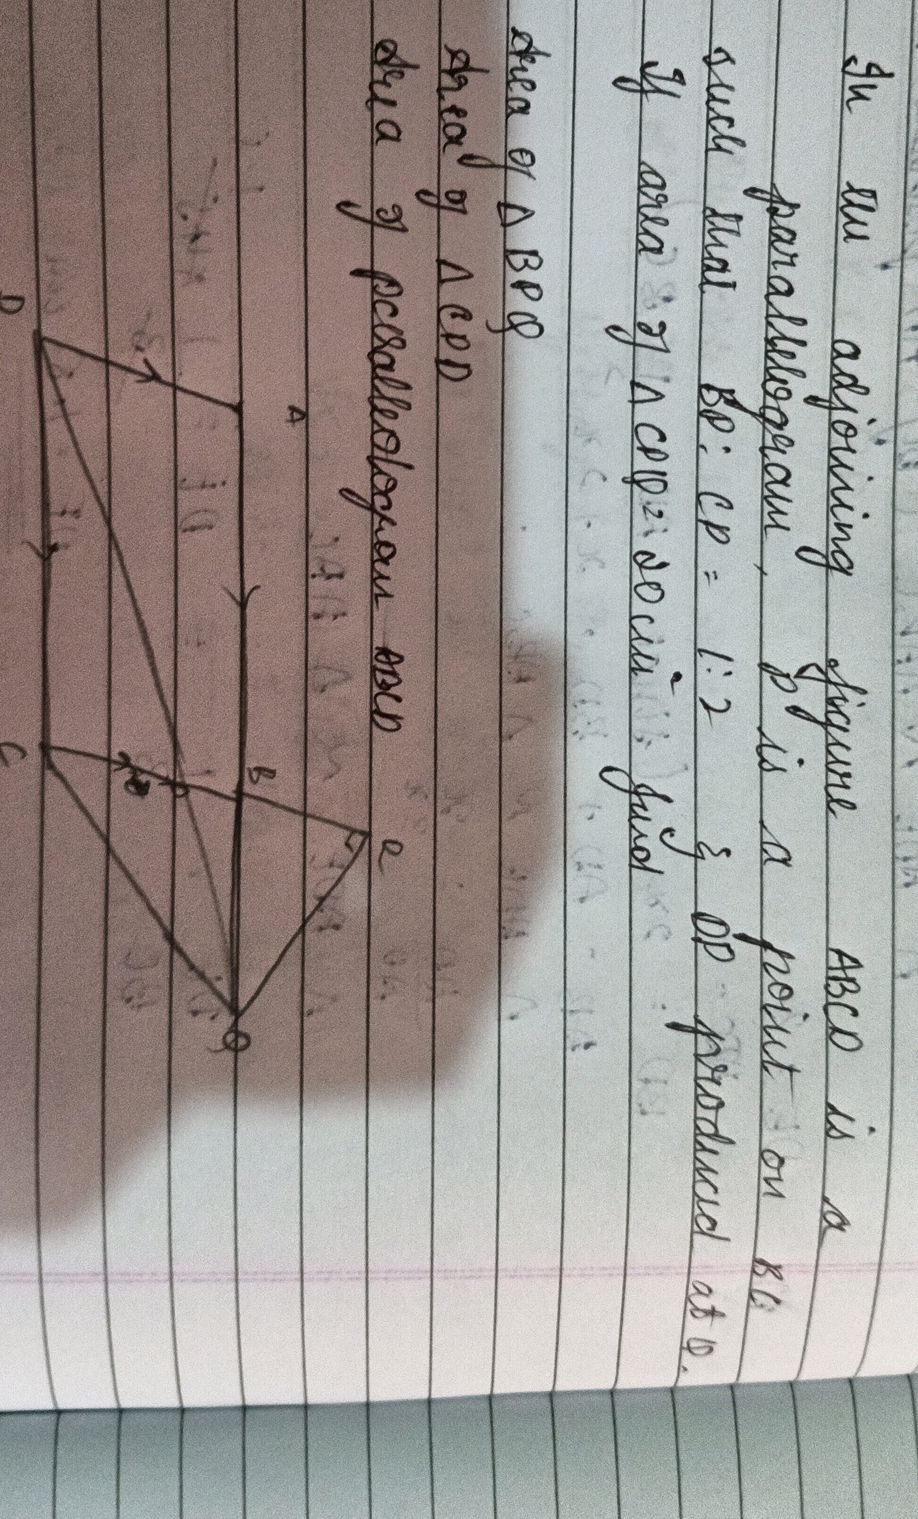 In the adjoining figure ABCD is a
parallelogram, P is a point on BC
such that BP: CP = 1:2 & DP produced at Q.
If area of Δ CPQ = 20 cm² find
Area of Δ BPQ
Area of Δ CPD
Area of parallelogram ABCD
A
B
R
D
C
P
Q